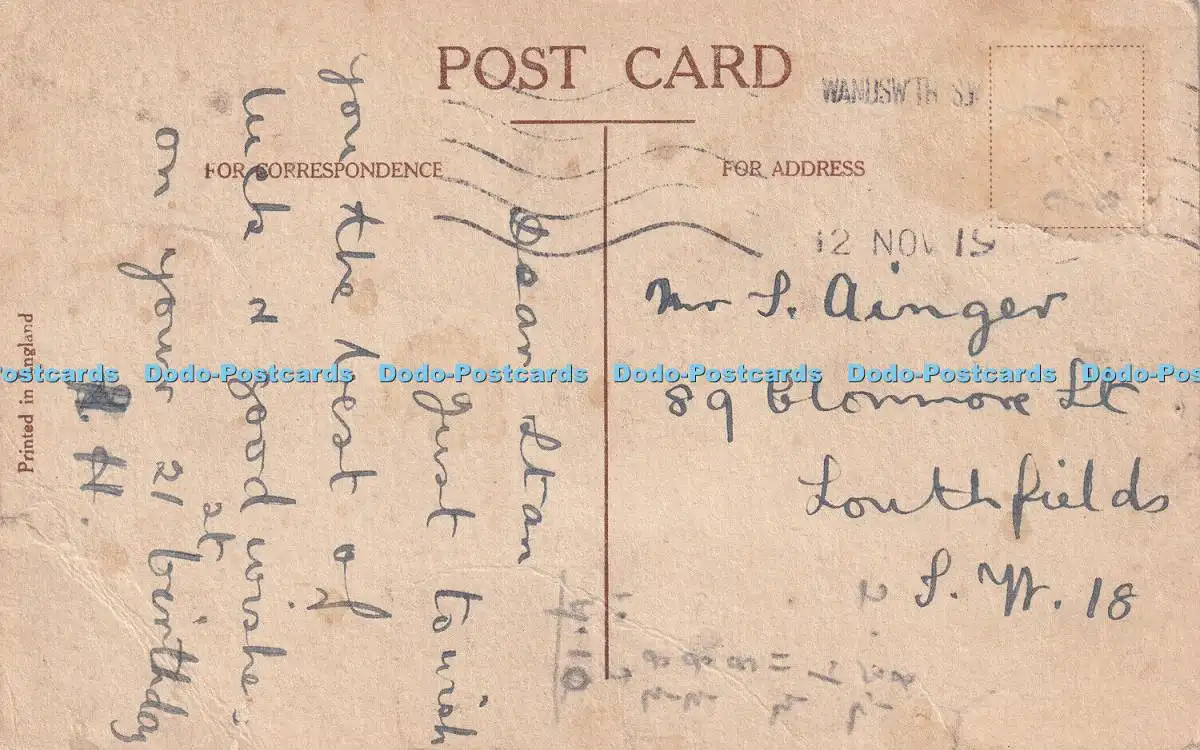 POST CARD
WANDSWTH S.W
FOR CORRESPONDENCE
FOR ADDRESS
12 NOV 19
Dear Stan
Just to wish
you the best of
luck & good wishes
on your 21st birthday
A. H.
Mr S. Ainger
89 Elonmore St
Southfields
S. W. 18
Printed in England
Dodo-Postcards Dodo-Postcards Dodo-Postcards Dodo-Postcards Dodo-Postcards